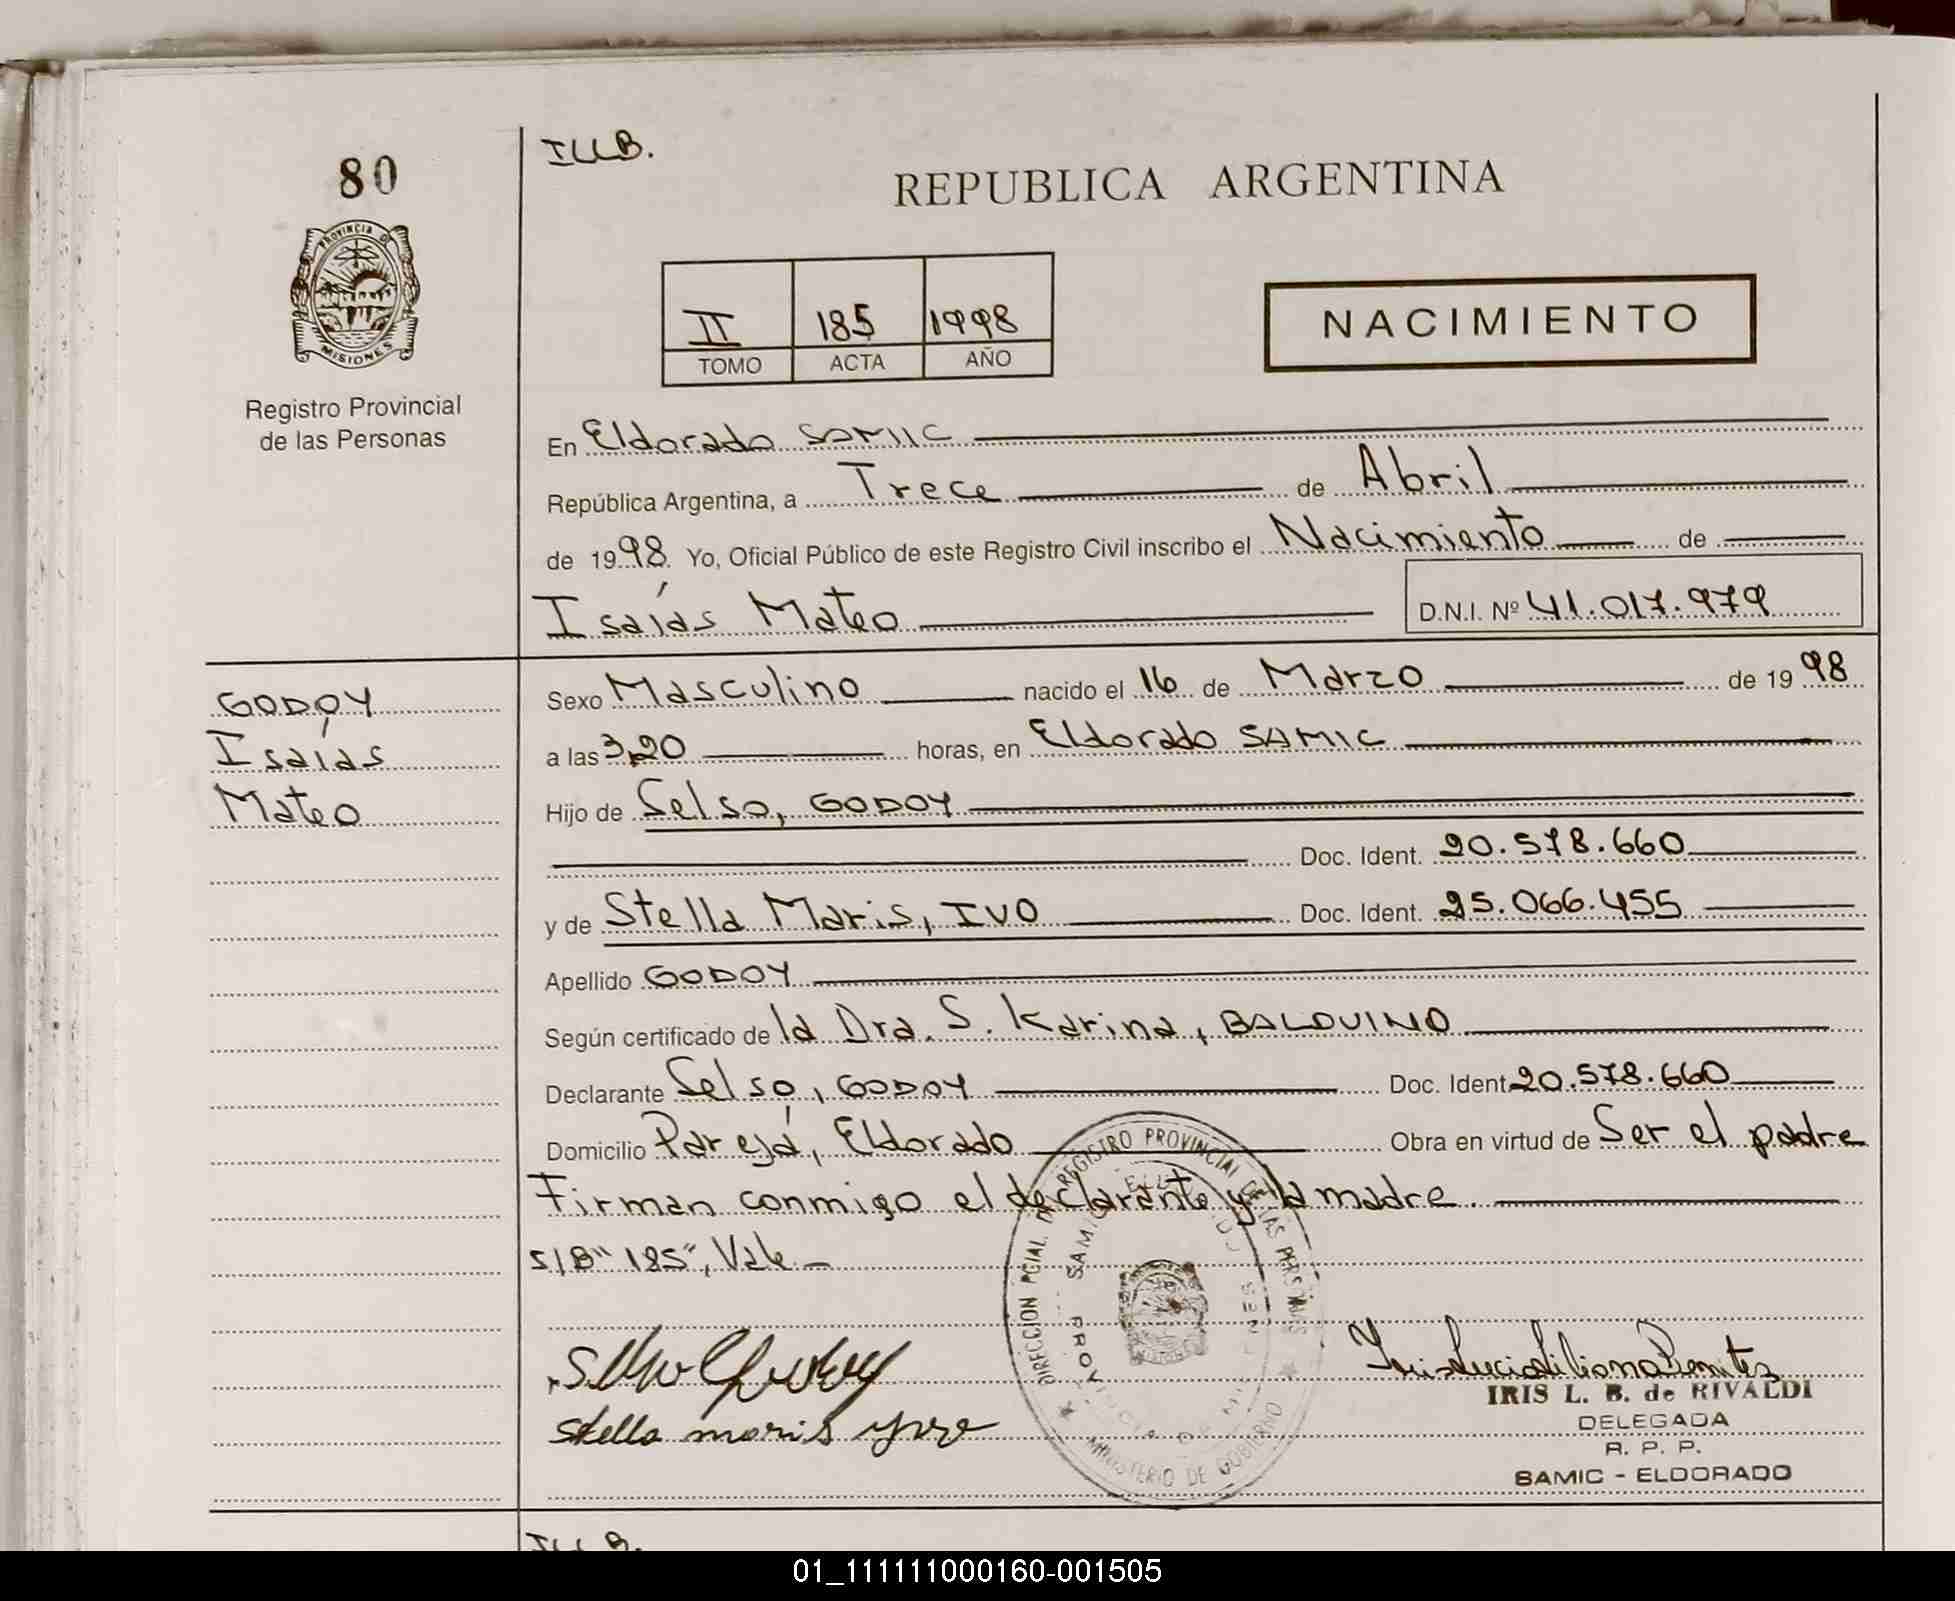 80
ILLB.
REPUBLICA ARGENTINA
PROVINCIA DE
MISIONES
Registro Provincial
de las Personas
II 185 1998
TOMO ACTA AÑO
NACIMIENTO
En Eldorado SAMIC
República Argentina, a Trece de Abril
de 1998 Yo, Oficial Público de este Registro Civil inscribo el Nacimiento de
Isaías Mateo D.N.I. Nº 41.017.979
GODOY
Isaías
Mateo
Sexo Masculino nacido el 16 de Marzo de 1998
a las 3,20 horas, en Eldorado SAMIC
Hijo de Selso, GODOY
Doc. Ident. 20.578.660
y de Stella Maris, IVO Doc. Ident. 25.066.455
Apellido GODOY
Según certificado de la Dra. S. Karina, BALDUINO
Declarante Selso, GODOY Doc. Ident 20.578.660
Domicilio Parejá, Eldorado Obra en virtud de Ser el padre
Firman conmigo el declarante y la madre.
S/B "185", Vale
DIRECCION PCIAL. DE REGISTRO PROVINCIAL DE LAS PERSONAS
MINISTERIO DE GOBIERNO
SAMIC
PROVINCIA DE MISIONES
Stella maris
IRIS L. B. de RIVALDI
DELEGADA
R. P. P.
SAMIC - ELDORADO
01_111111000160-001505